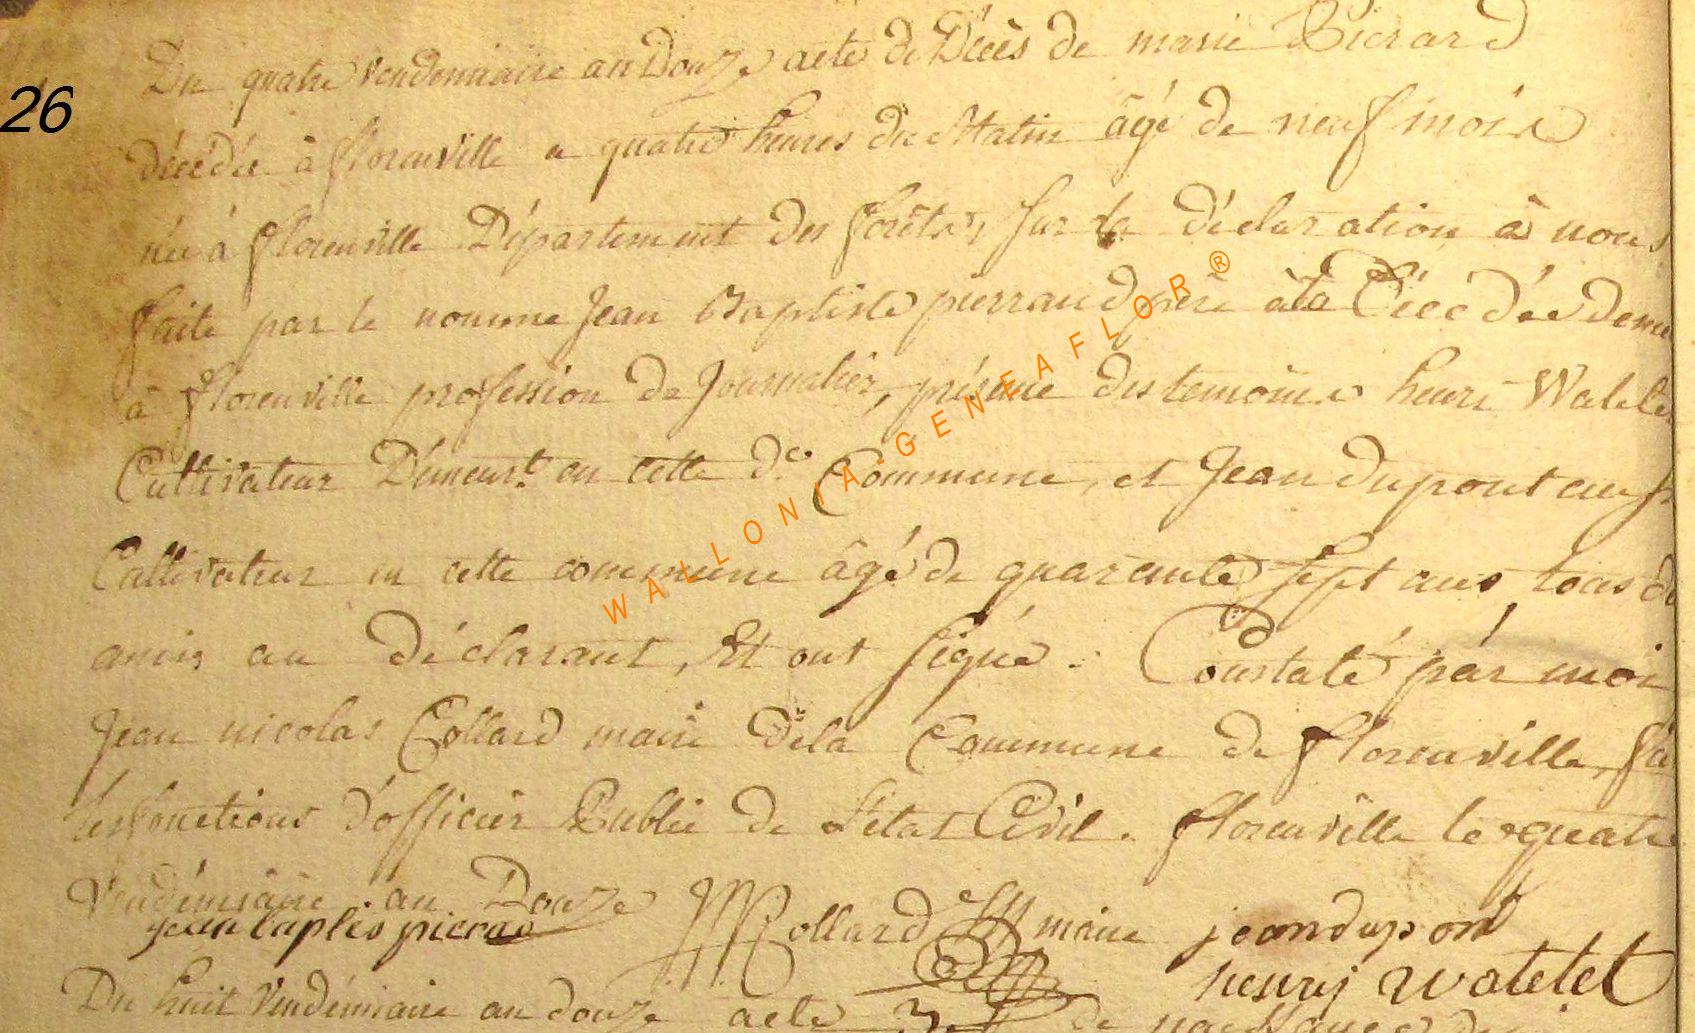 26
Du quatre vendemiaire an Douze acte de Décès de marie Pierard
décédée à florenville a quatre heures du Matin âgé de neuf mois
née à florenville Département des forêts, sur la déclaration à nous
faite par le nomme Jean Baptiste pierrard père à la Décédée deme
à florenville profession de Journalier, présence des temoins henri Watele
Cultivateur Démeurt. en cette de. Commune, et Jean dupont aussi
Cultivateur en cette commune âgé de quarante sept ans, tous d
amis au déclarant, Et ont signé. Constaté par moi
Jean nicolas Collard maire dela Commune de florenville, fa
les fonctions d'officier Public de l'état Civil. florenville le quatre
Vendémiaire an Douze
jean baptis pierar Collard maire jean dupont
henry watelet
Du huit Vendémiaire an douze acte de naissance de
WALLONIA-GENEAFLOR®